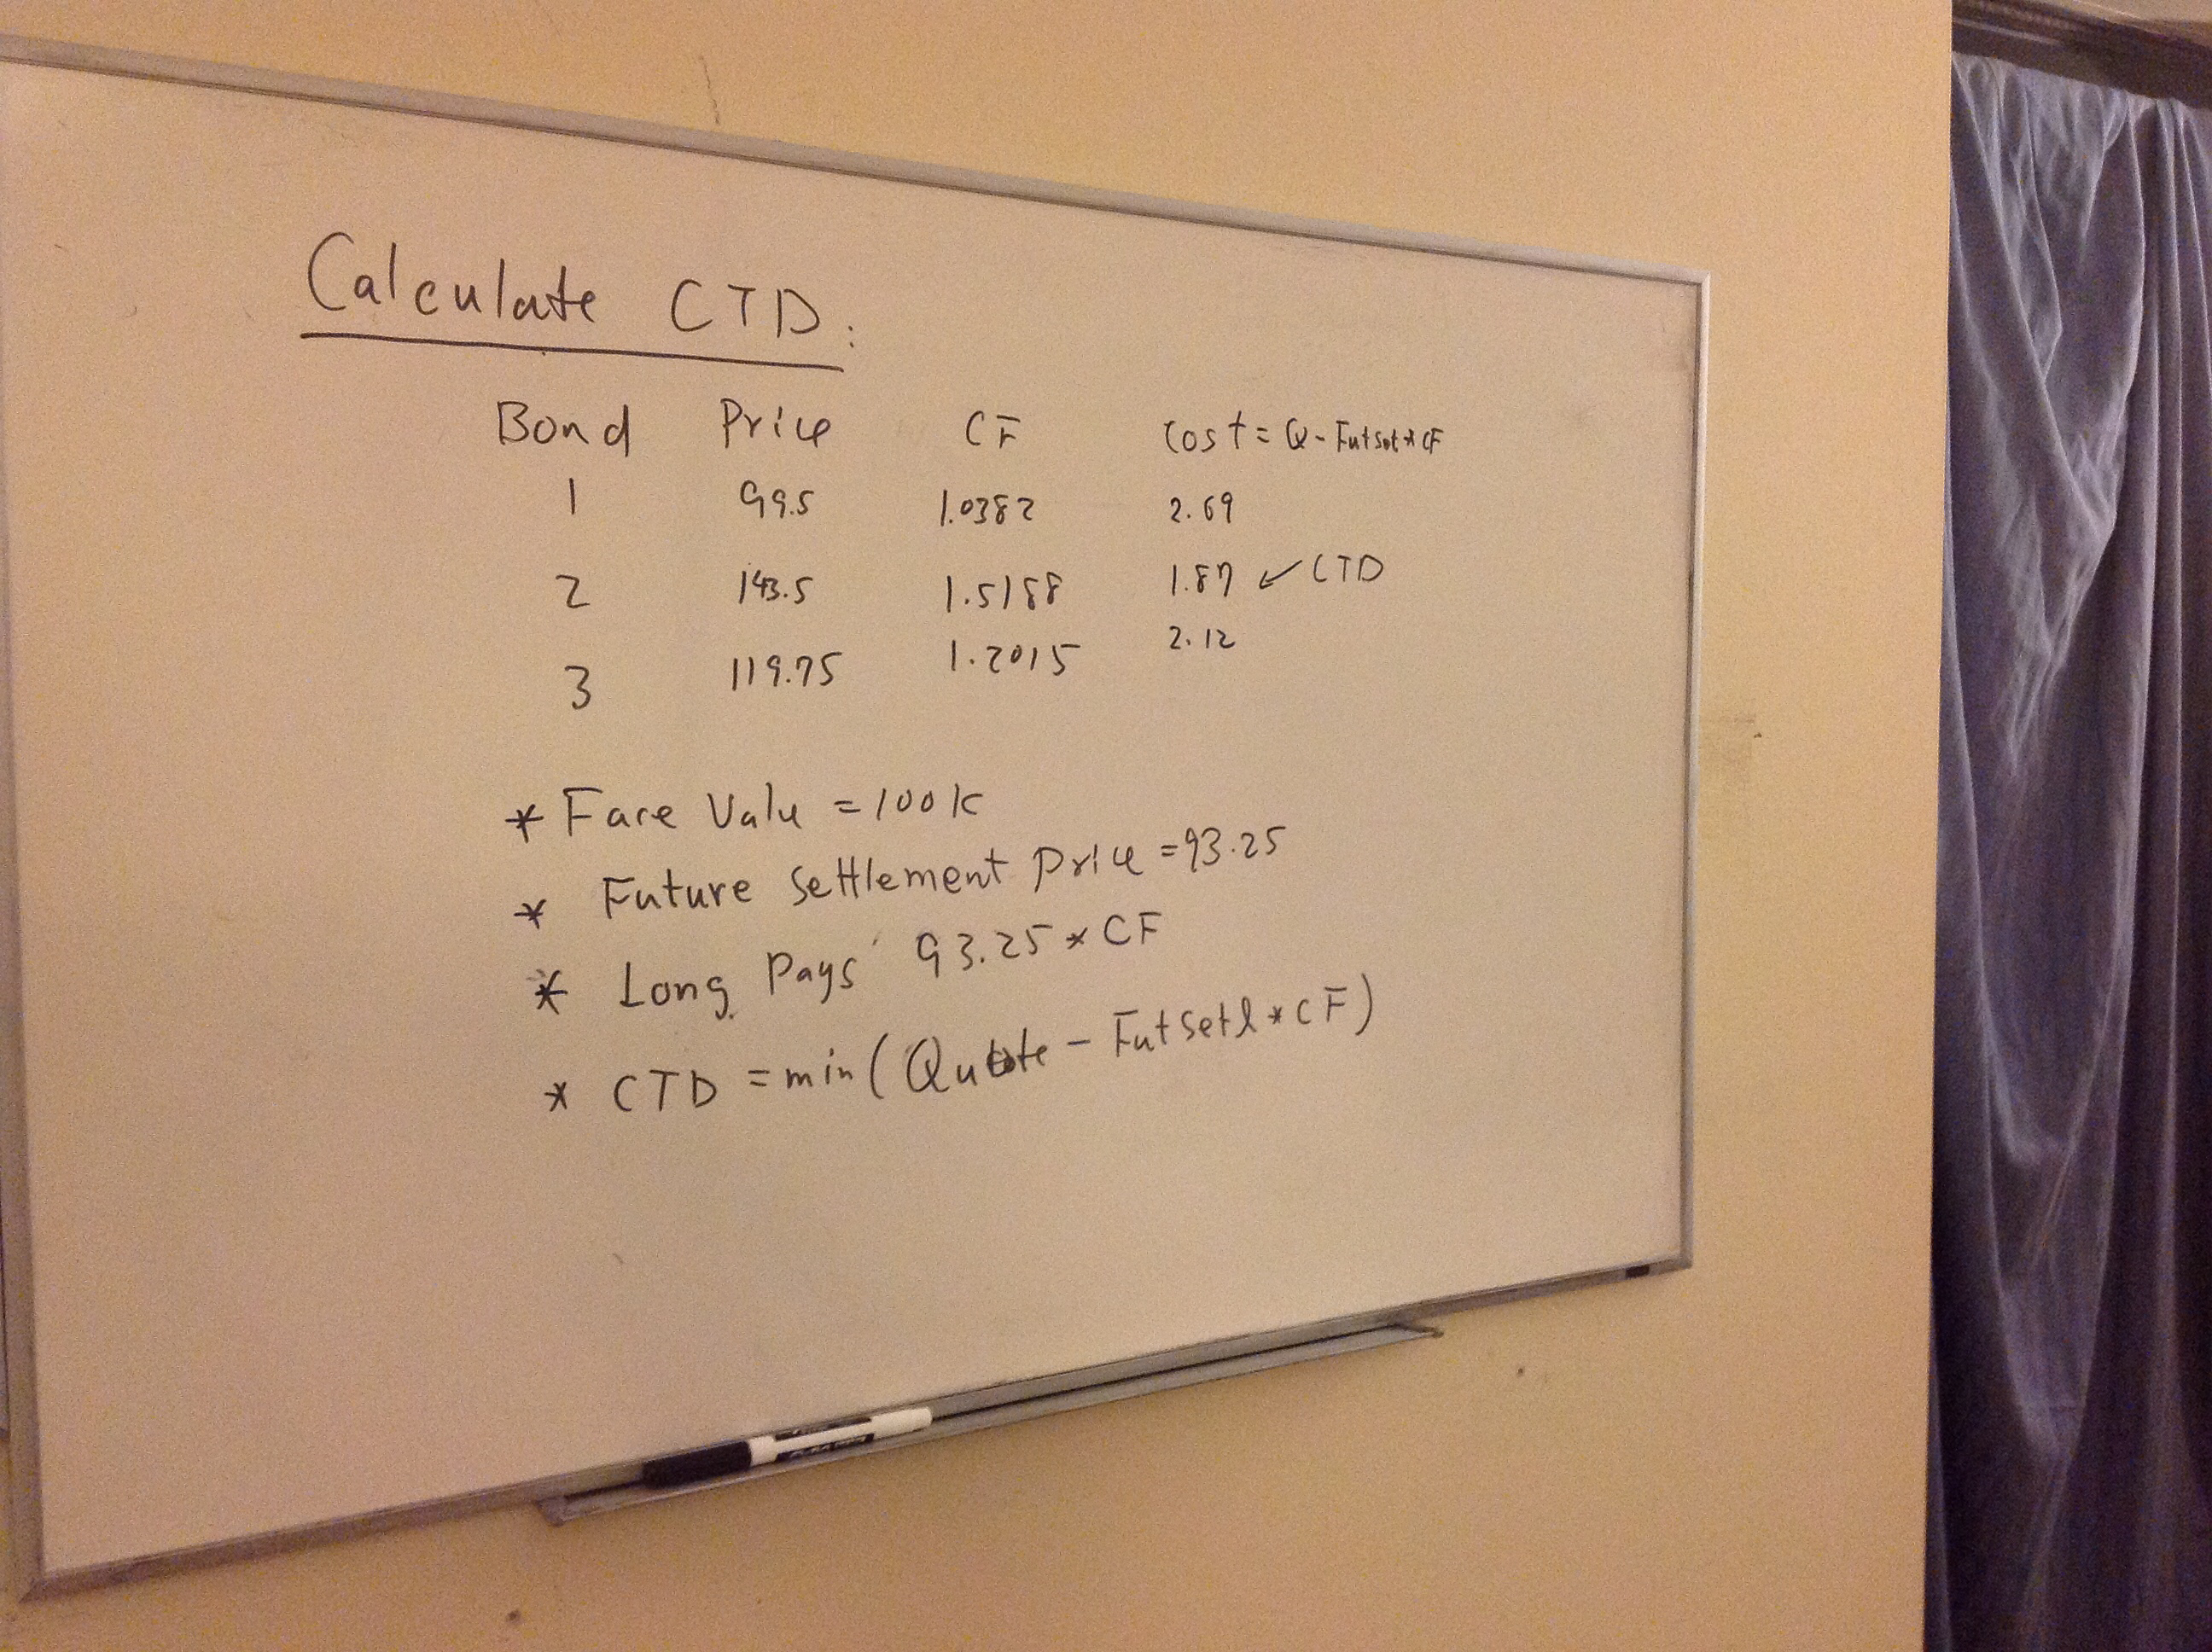 Calculate CTD:
Bond Price CF Cost = Q - Futset * CF
1 99.5 1.0382 2.69
2 143.5 1.5188 1.87 ✓ CTD
3 119.75 1.2015 2.12
* Face Value = 100k
* Future Settlement Price = 93.25
* Long Pays 93.25 * CF
* CTD = min (Quote - Futsetl * CF)